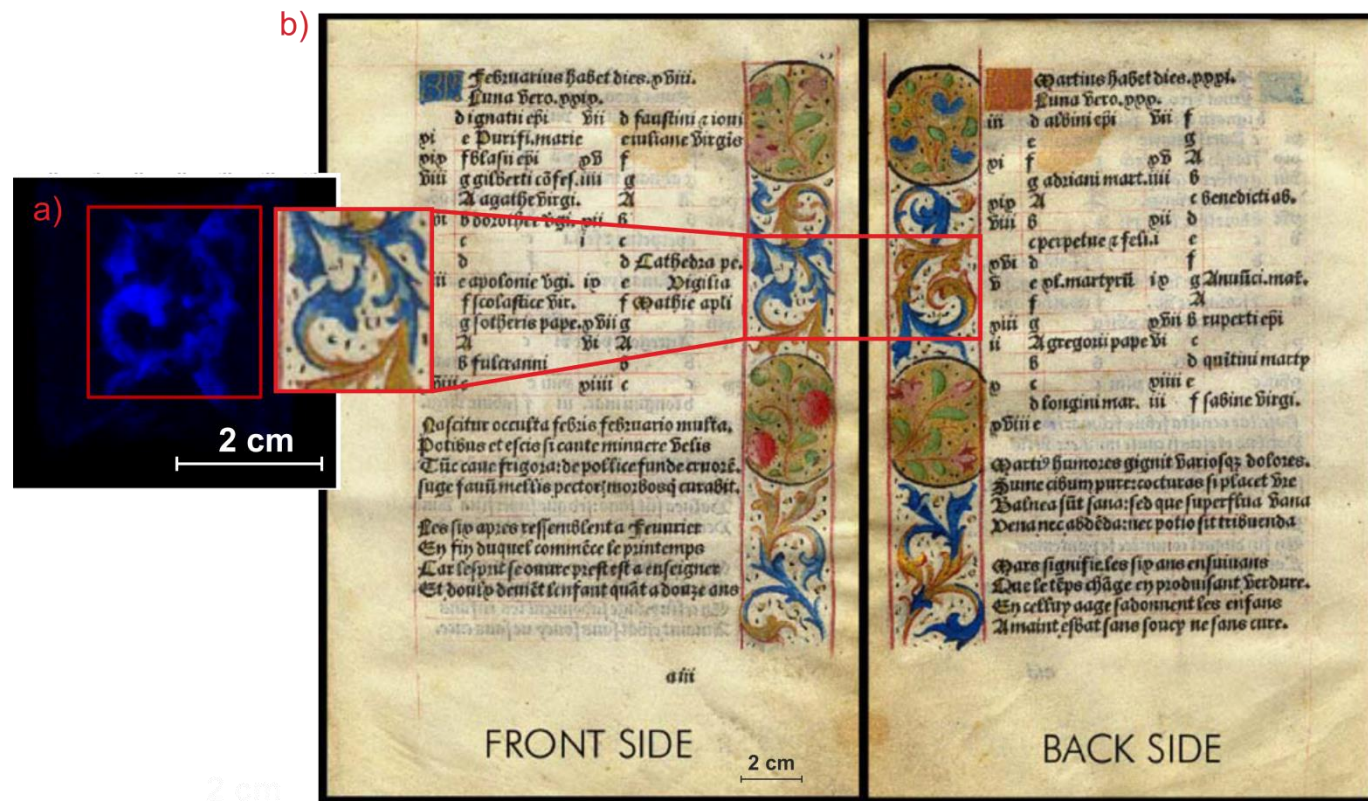 a)
2 cm
b)
Februarius habet dies. xxviii.
Luna vero. xxix.
d ignatii epi vii d faustini z ioui
xi e Purifi. marie e iuliane virgis
xix f blasii epi xv f
viii g gilberti cõfes. iiii g
A agathe virgi. A
xvi b dorothee vgi. xii b
c i c
d d Cathedra pe.
e apolonie vgi. ix e Vigilia
f scolastice vir. f Mathie apli
g sotheris pape. xvii g
A vi A
b fulcranni b
c xiiii c
Nascitur occulta febris februario multa.
Potibus et escis si caute minuere velis
Tũc caue frigora: de pollice funde cruorẽ.
suge fauũ mellis pector; morbosq curabit.
Les six apres ressemblent a Feurier
En fin duquel commẽce le printemps
Car lesprit se ouure prest est a enseigner
Et doulx deuiẽt lenfant quãt a douze ans
aiii
FRONT SIDE
2 cm
Martius habet dies. xxxi.
Luna vero. xxx.
iii d albini epi vii f
e g
xi f xv A
g adriani mart. iiii b
xix A c benedicti ab.
viii b xii d
c perpetue z feli. i e
xvi d f
v e xl. martyrũ ix g Anũnci. mar.
f A
xiii g xvii b ruperti epi
ii A gregorii pape vi c
b d quĩtini marty
x c xiiii e
d longini mar. iii f sabine virgi.
xviii e
Marti9 humores gignit variosqz dolores.
Sume cibum pure: cocturas si placet vre
Balnea sũt sana: sed que superflua vana
Vena nec abdẽda: nec potio sit tribuenda
Mars signifie les six ans ensuiuans
Que le tẽps chãge en produisant verdure.
En celluy aage sadonnent les enfans
A maint esbat sans soucy ne sans cure.
BACK SIDE